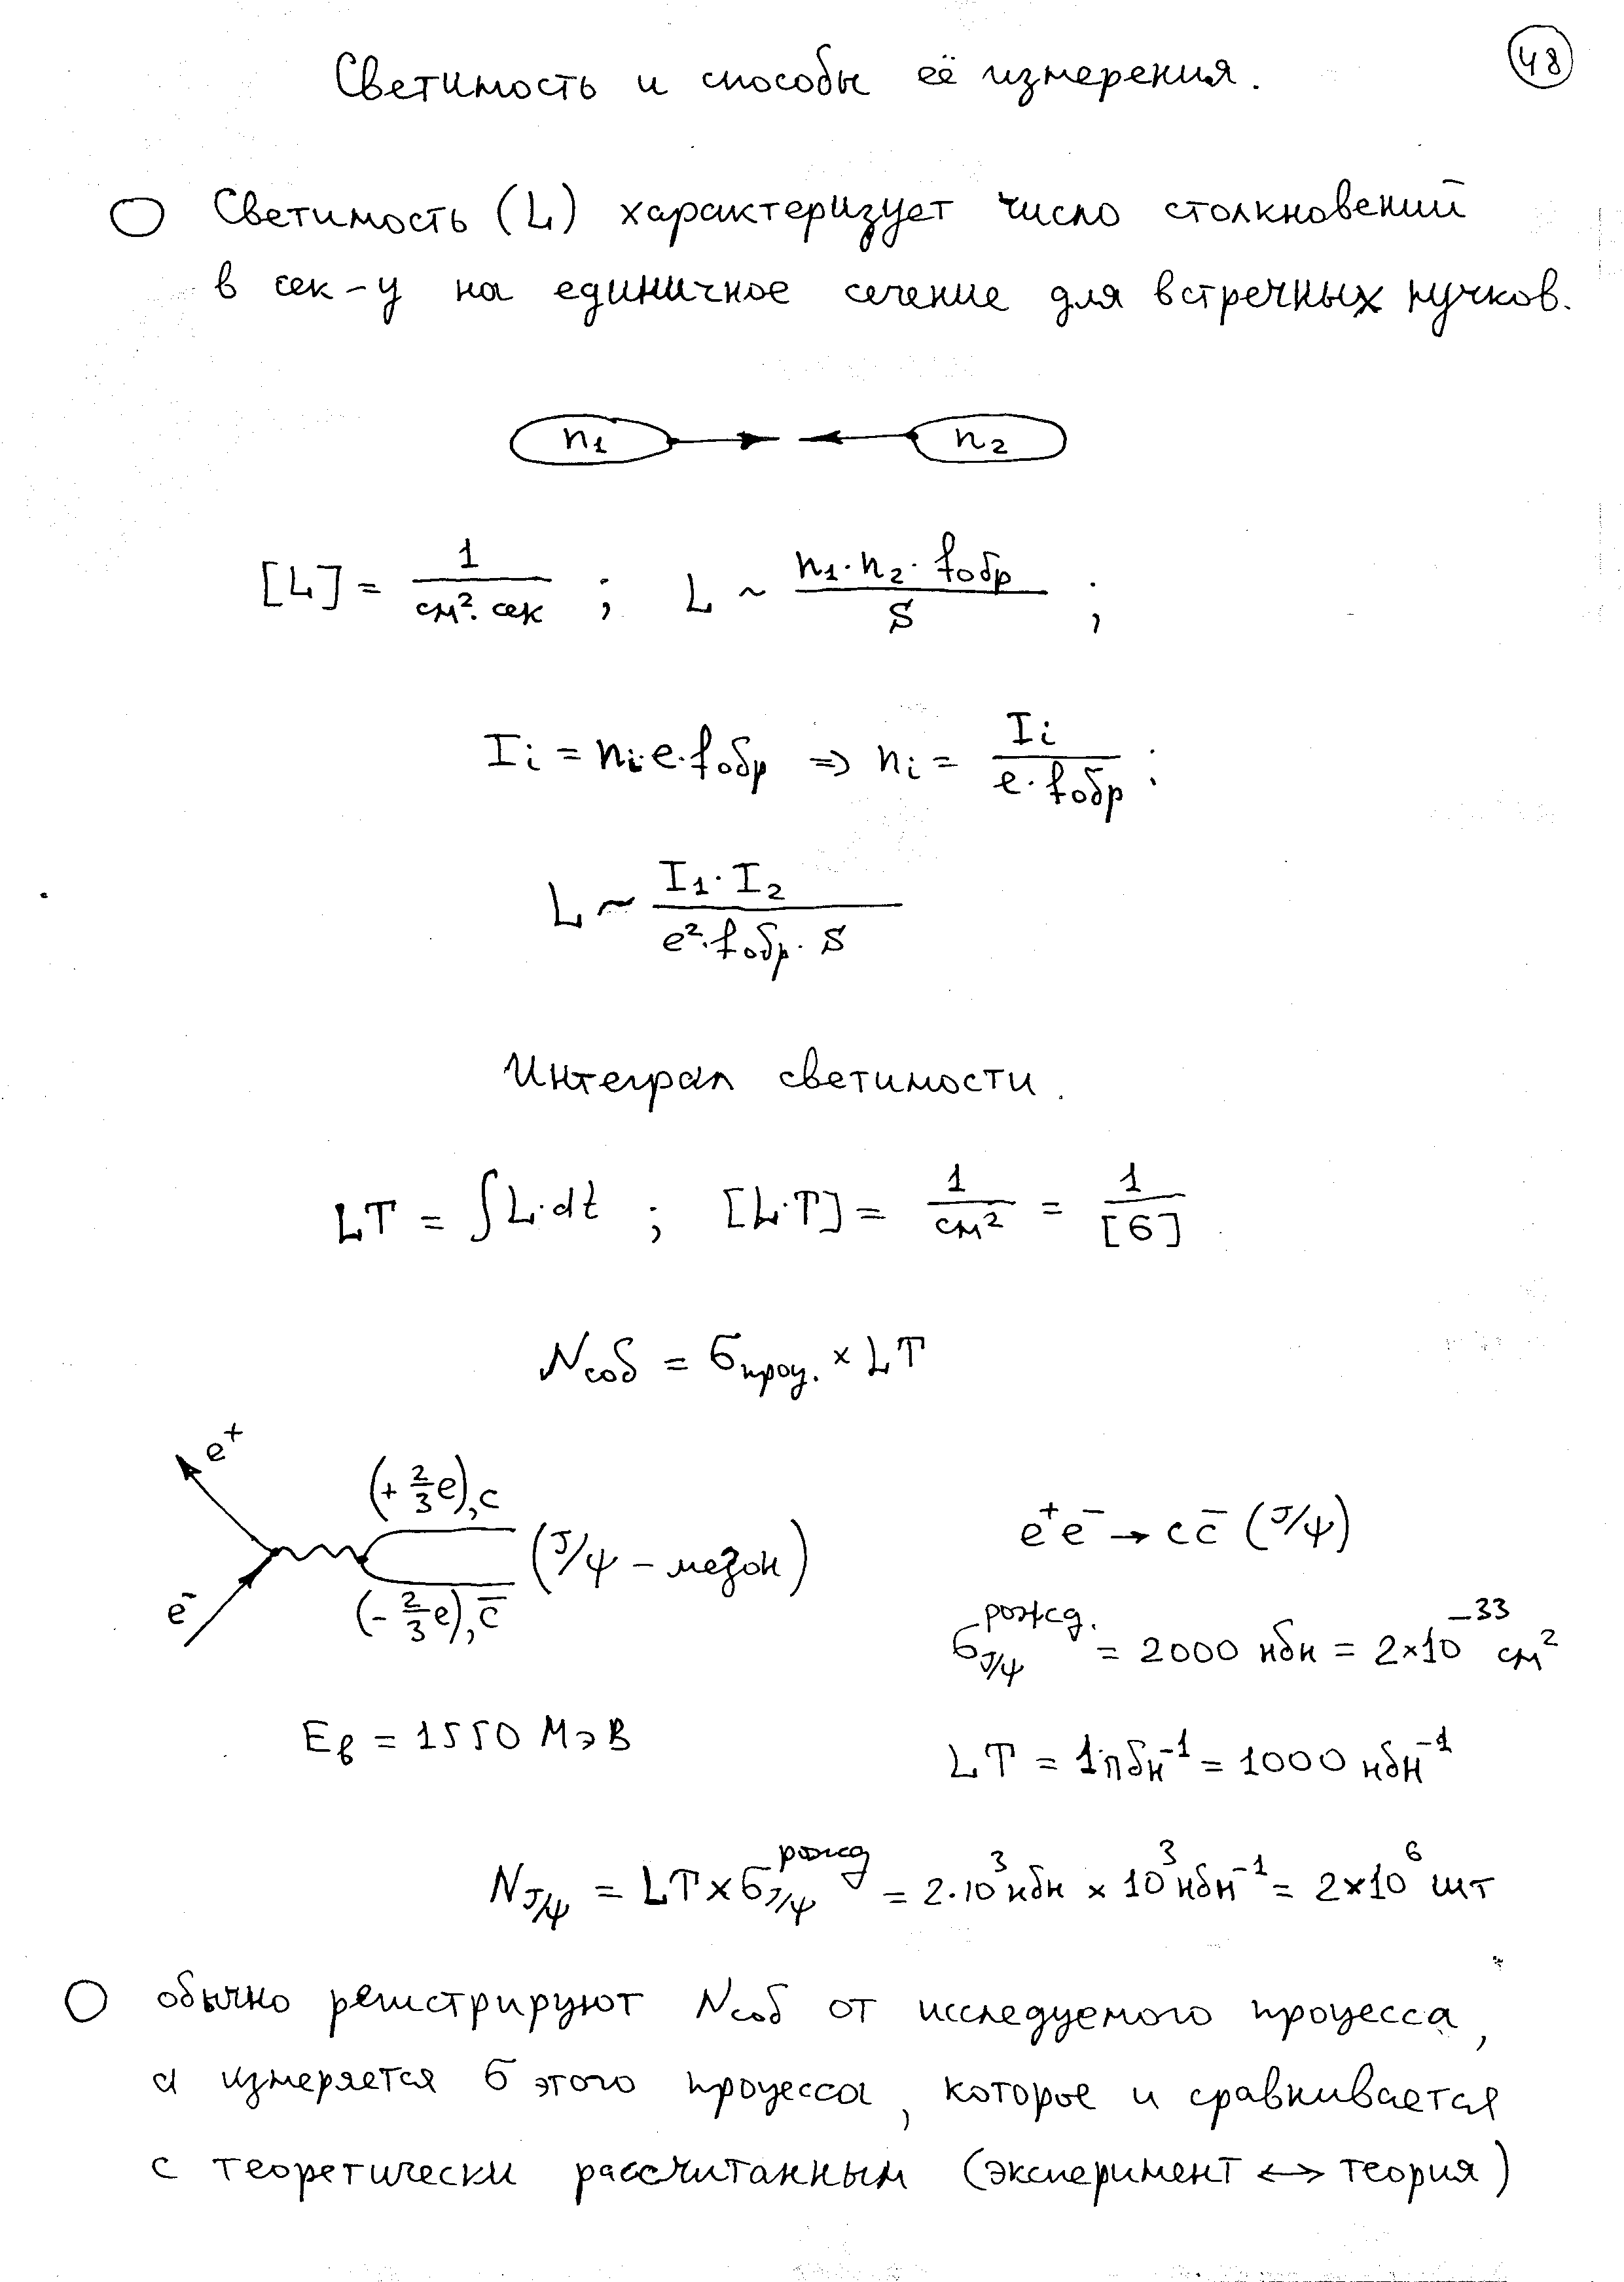 48
Светимость и способы её измерения.
Светимость (L) характеризует число столкновений
в сек-у на единичное сечение для встречных пучков.
n₁ n₂
[L] = 1/(см²·сек) ; L ~ (n₁·n₂·fобр)/S ;
Iᵢ = nᵢ·e·fобр ⇒ nᵢ = Iᵢ/(e·fобр) ;
L ~ (I₁·I₂)/(e²·fобр·S)
Интеграл светимости.
LT = ∫L·dt ; [L·T] = 1/см² = 1/[σ]
Nсоб = σпроц. × LT
e⁺
(+ 2/3 e), c
(J/ψ – мезон)
e⁻
(- 2/3 e), c̄
e⁺e⁻ → cc̄ (J/ψ)
σ_J/ψ^рожд. = 2000 нбн = 2×10⁻³³ см²
Eв = 1550 МэВ
LT = 1пбн⁻¹ = 1000 нбн⁻¹
N_J/ψ = LT × σ_J/ψ^рожд = 2·10³нбн × 10³нбн⁻¹ = 2×10⁶ шт
обычно регистрируют Nсоб от исследуемого процесса,
а измеряется σ этого процесса, которое и сравнивается
с теоретически рассчитанным (эксперимент ↔ теория)